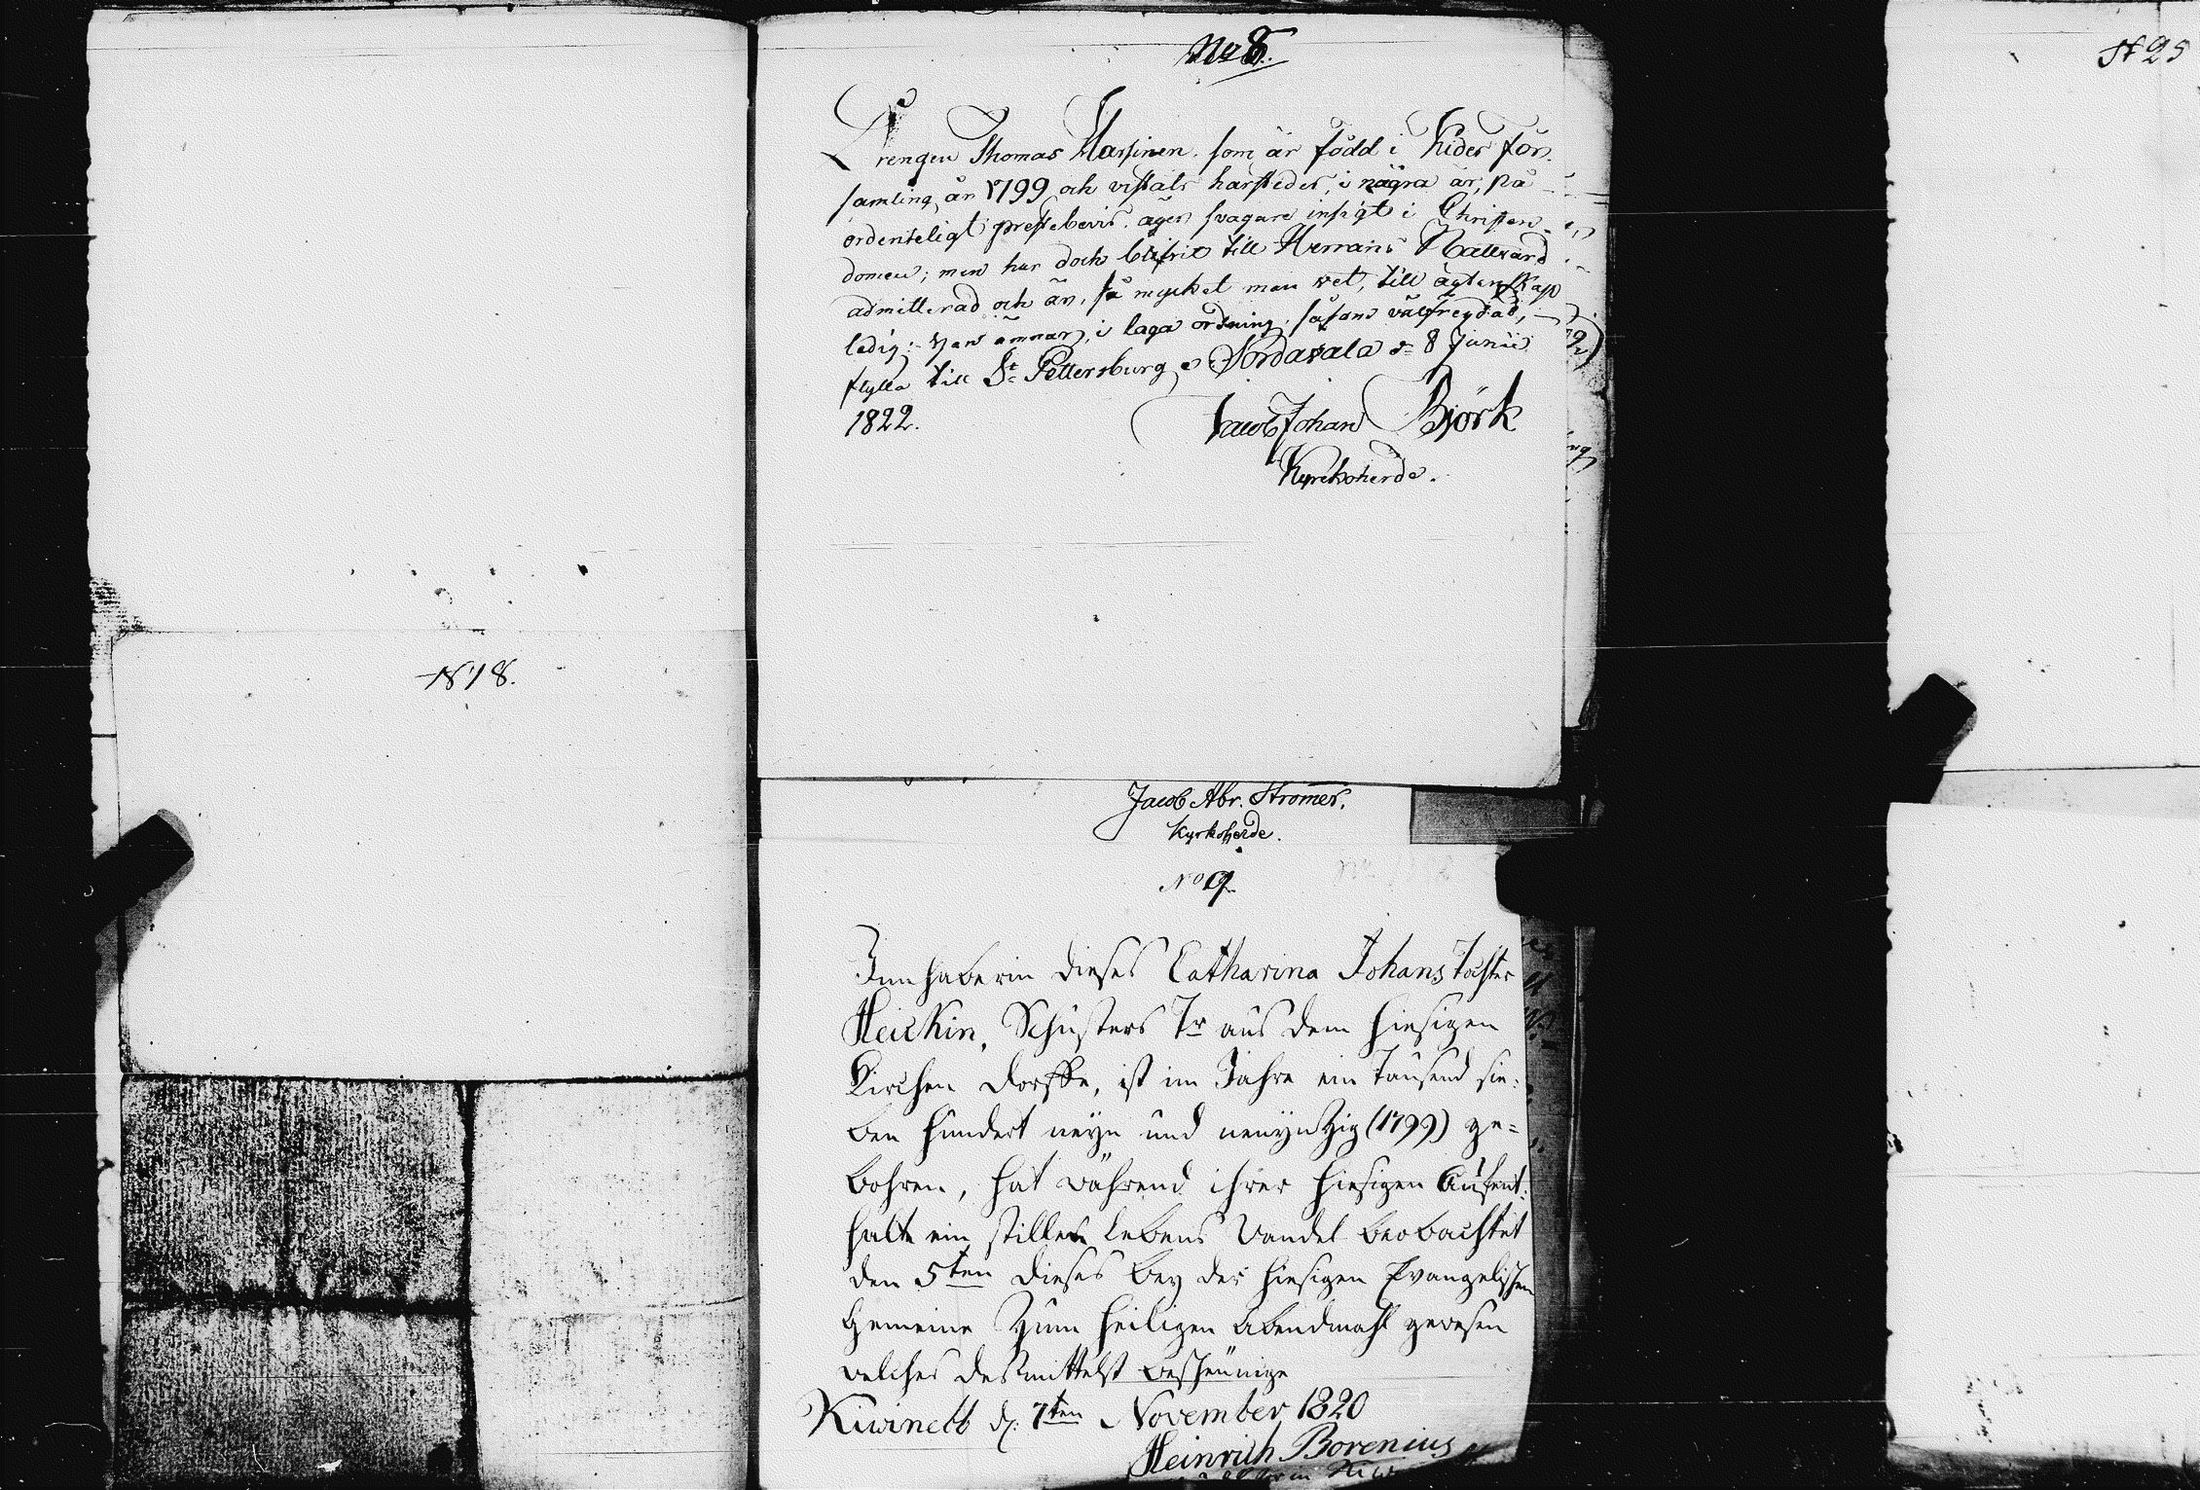 1818.
No 8.
Drengen Thomas Harsinen som är född i Kides för-
samling år 1799 och vistats härstedes i några år, på
ordenteligt prestebevis, äger svagare insigt i Christen-
domen; men har dock blifvit till Herrans Nattvard
admitterad och är, så mycket man vet, till ägtenskap
ledig: Han ämnar, i laga ordning, såsom välfreydad,
flytta till St Pettersburg, Sordavala d. 8 Junii
1822.
Jacob Johan Björk
Kyrckoherde.
Jacob Abr. Stromer.
Kyrkoherde.
No 9.
Innhaberin dieses Catharina Johans Tochter
Heickin, Schusters Tr aus dem hiesigen
Kirchen dorffe, ist im Jahre ein Tausend sie:
ben hundert neyn und neuynzig (1799) ge=
bohren, hat während ihrer hiesigen Aufent:
halte ein stilles Lebens Wandel beobachtet
den 5ten dieses bey der hiesigen Evangelischen
Gemeine zum heiligen Abendmahl gewesen
welches desmittelst bescheunige
Kiwineb d. 7ten November 1820
Heinrich Borenius
N 25